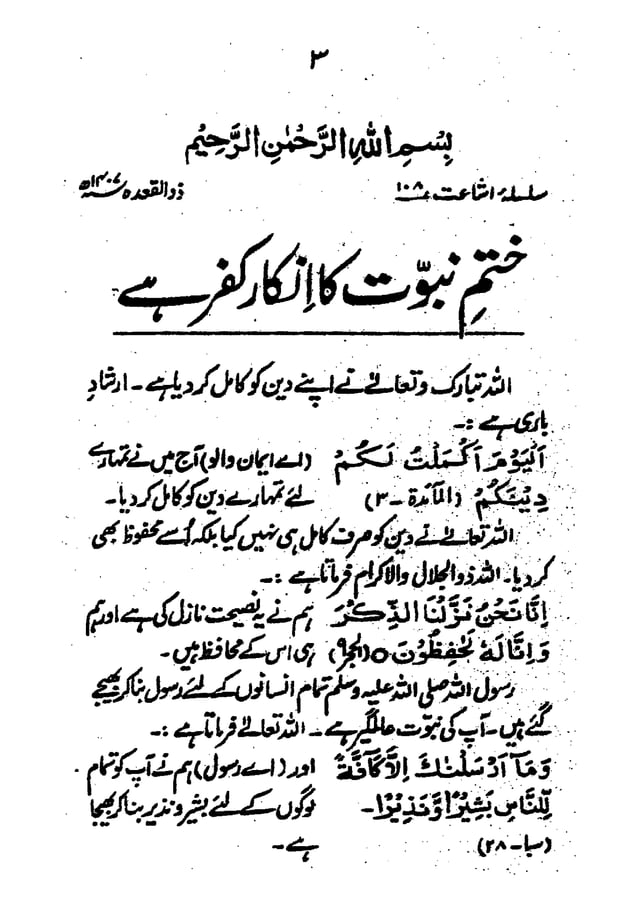 ۳
بِسْمِ اللّٰهِ الرَّحْمٰنِ الرَّحِيْمِ
سلسلہ اشاعت ۱۰۸ ذوالقعدہ ۱۴۰۷ھ
ختمِ نبوّت کا اِنکار کفر ہے
اللہ تبارک و تعالےٰ نے اپنے دین کو کامل کر دیا ہے ۔ ارشادِ
باری ہے :۔
اَلْيَوْمَ اَكْمَلْتُ لَكُمْ (اے ایمان والو) آج میں نے تمہارے
دِيْنَكُمْ (المآئدۃ ۔ ۳) لئے تمہارے دین کو کامل کر دیا۔
اللہ تعالےٰ نے دین کو صرف کامل ہی نہیں کیا بلکہ اُسے محفوظ بھی
کر دیا۔ اللہ ذوالجلال والاکرام فرماتا ہے :۔
اِنَّا نَحْنُ نَزَّلْنَا الذِّكْرَ ہم نے یہ نصیحت نازل کی ہے اور ہم
وَاِنَّا لَهٗ لَحٰفِظُوْنَ ۝ (الحجر ۹) ہی اس کے محافظ ہیں۔
رسول اللہ صلی اللہ علیہ وسلم تمام انسانوں کے لئے رسول بنا کر بھیجے
گئے ہیں۔ آپ کی نبوت عالمگیر ہے ۔ اللہ تعالےٰ فرماتا ہے :۔
وَمَآ اَرْسَلْنٰكَ اِلَّا كَآفَّةً اور (اے رسول) ہم نے آپ کو تمام
لِّلنَّاسِ بَشِيْرًا وَّنَذِيْرًا۔ لوگوں کے لئے بشیر و نذیر بنا کر بھیجا
(سبا ۔ ۲۸) ہے ۔